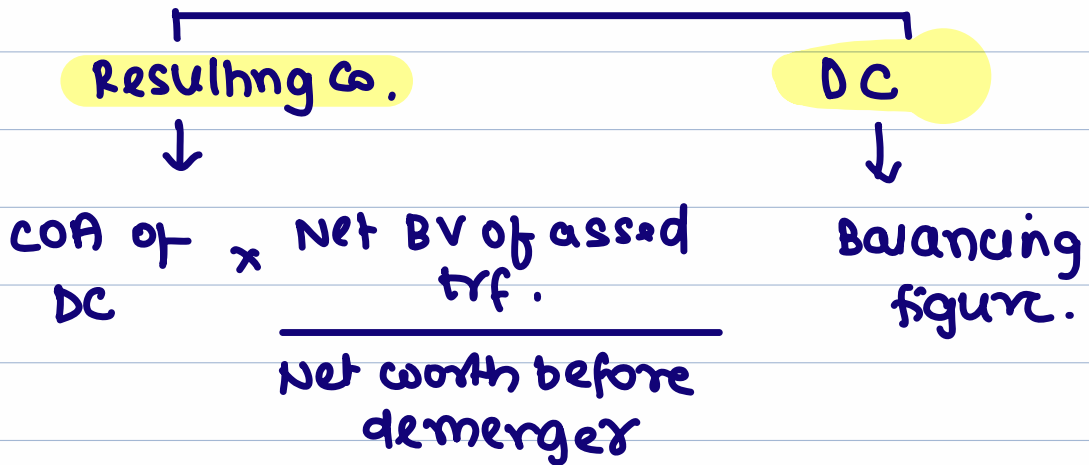 Resulting co.
DC
COA of × Net BV of assed
DC
trf.
Net worth before
demerger
Balancing
figure.